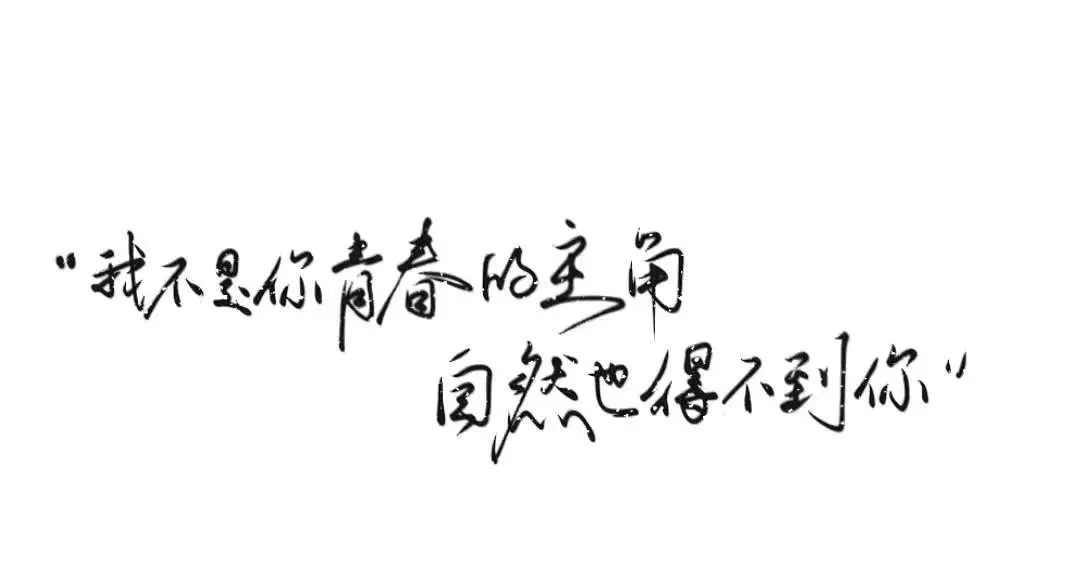 “我不是你青春的主角
自然也得不到你”